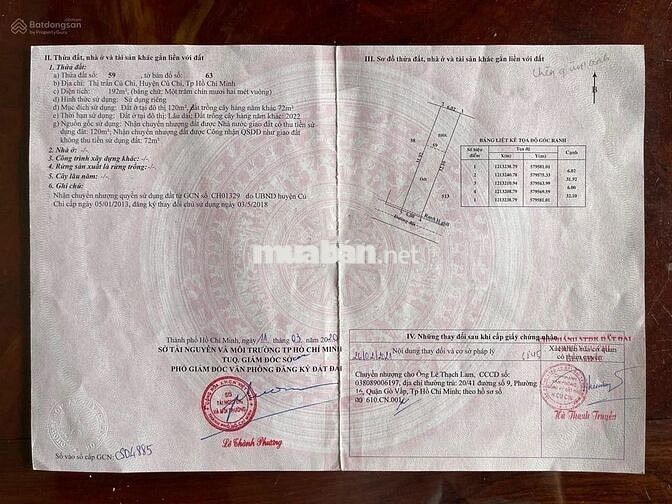 Batdongsan
by PropertyGuru
II. Thửa đất, nhà ở và tài sản khác gắn liền với đất
1. Thửa đất:
a) Thửa đất số: 59, tờ bản đồ số: 63
b) Địa chỉ: Thị trấn Củ Chi, Huyện Củ Chi, Tp Hồ Chí Minh
c) Diện tích: 192m², (bằng chữ: Một trăm chín mươi hai mét vuông)
d) Hình thức sử dụng: Sử dụng riêng
đ) Mục đích sử dụng: Đất ở tại đô thị 120m², đất trồng cây hàng năm khác 72m²
e) Thời hạn sử dụng: Đất ở tại đô thị: Lâu dài; Đất trồng cây hàng năm khác: 2022
g) Nguồn gốc sử dụng: Nhận chuyển nhượng đất được Nhà nước giao đất có thu tiền sử
dụng đất: 120m²; Nhận chuyển nhượng đất được Công nhận QSDĐ như giao đất
không thu tiền sử dụng đất: 72m²
2. Nhà ở: -/-
3. Công trình xây dựng khác: -/-
4. Rừng sản xuất là rừng trồng: -/-
5. Cây lâu năm: -/-
6. Ghi chú:
Nhận chuyển nhượng quyền sử dụng đất từ GCN số CH01329 do UBND huyện Củ
Chi cấp ngày 05/01/2013, đăng ký thay đổi chủ sử dụng ngày 03/5/2018
Thành phố Hồ Chí Minh, ngày 11 tháng 03 năm
SỞ TÀI NGUYÊN VÀ MÔI TRƯỜNG TP HỒ CHÍ MINH
TUQ. GIÁM ĐỐC SỞ
PHÓ GIÁM ĐỐC VĂN PHÒNG ĐĂNG KÝ ĐẤT ĐAI
SỞ
TÀI NGUYÊN
VÀ MÔI TRƯỜNG
Lê Thành Phương
Số vào sổ cấp GCN:
III. Sơ đồ thửa đất, nhà ở và tài sản khác gắn liền với đất
B
BẢNG LIỆT KÊ TỌA ĐỘ GÓC RANH
Số hiệu điểm Tọa độ Cạnh
X(m) Y(m)
1 1213238.79 579581.01
6.02
2 1213240.78 579575.33
31.92
3 1213210.94 579563.99
6.00
4 1213208.79 579569.59
32.10
1 1213238.79 579581.01
58
513
muaban.net
IV. Những thay đổi sau khi cấp giấy chứng nhận
Nội dung thay đổi và cơ sở pháp lý
Chuyển nhượng cho Ông Lê Thạch Lam, CCCD số:
038089006197, địa chỉ thường trú: 20/41 đường số 9, Phường
16, Quận Gò Vấp, Tp Hồ Chí Minh; theo hồ sơ số
610.CN.001
Hà Thanh Truyền